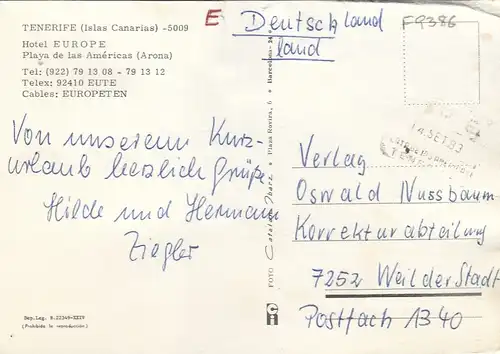 TENERIFE (Islas Canarias) -5009
Hotel EUROPE
Playa de las Américas (Arona)
Tel: (922) 79 13 08 - 79 13 12
Telex: 92410 EUTE
Cables: EUROPETEN
E Deutschland
land
F9386
14.SET.83
Von unserem Kurz-
urlaub herzlich Grüße
Hilde und Hermann
Ziegler
Verlag
Oswald Nussbaum
Korrekturabteilung
7252 Weil der Stadt
Postfach 1340
FOTO Catalan Ibarz Plaza Rovira, 6 Barcelona-24
Dep. Leg. B.22349-XXIV
(Prohibida la reproducción)